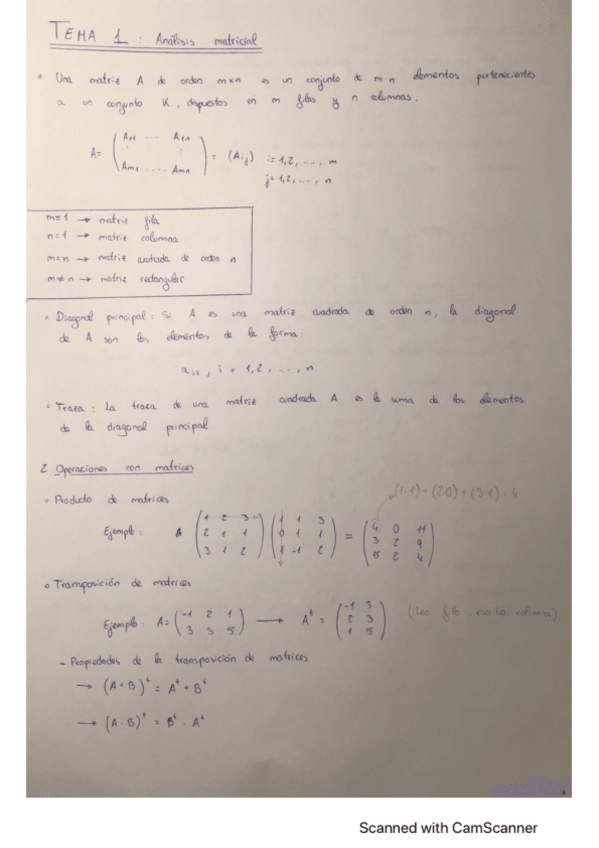 TEMA 1 : Análisis matricial
• Una matriz A de orden m×n es un conjunto de m n elementos pertenecientes
a un conjunto K, dispuestos en m filas y n columnas.
A = ( A11 .... A1n
: :
Am1 .... Amn ) = (Aij) i=1,2, ..., m
j=1,2, ..., n
m=1 → matriz fila
n=1 → matriz columna
m=n → matriz cuadrada de orden n
m≠n → matriz rectangular
• Diagonal principal: Si A es una matriz cuadrada de orden n, la diagonal
de A son los elementos de la forma:
aii , i = 1,2, ..., n.
• Traza : La traza de una matriz cuadrada A es la suma de los elementos
de la diagonal principal
2 Operaciones con matrices
• Producto de matrices
(1·1)+(2·0)+(3·1)=4
Ejemplo: ( 1 2 3 ) ( 1 1 3 ) = ( 4 0 11 )
( 2 1 1 ) ( 0 1 1 ) ( 3 2 9 )
( 3 1 2 ) ( 1 -1 2 ) ( 5 2 4 )
• Transposición de matrices
Ejemplo: A = ( -1 2 1 ) → Aᵗ = ( -1 3 ) (Leo fila, escribo columna)
( 3 3 5 ) ( 2 3 )
( 1 5 )
- Propiedades de la transposición de matrices
→ (A+B)ᵗ = Aᵗ + Bᵗ
→ (A·B)ᵗ = Bᵗ · Aᵗ
Scanned with CamScanner